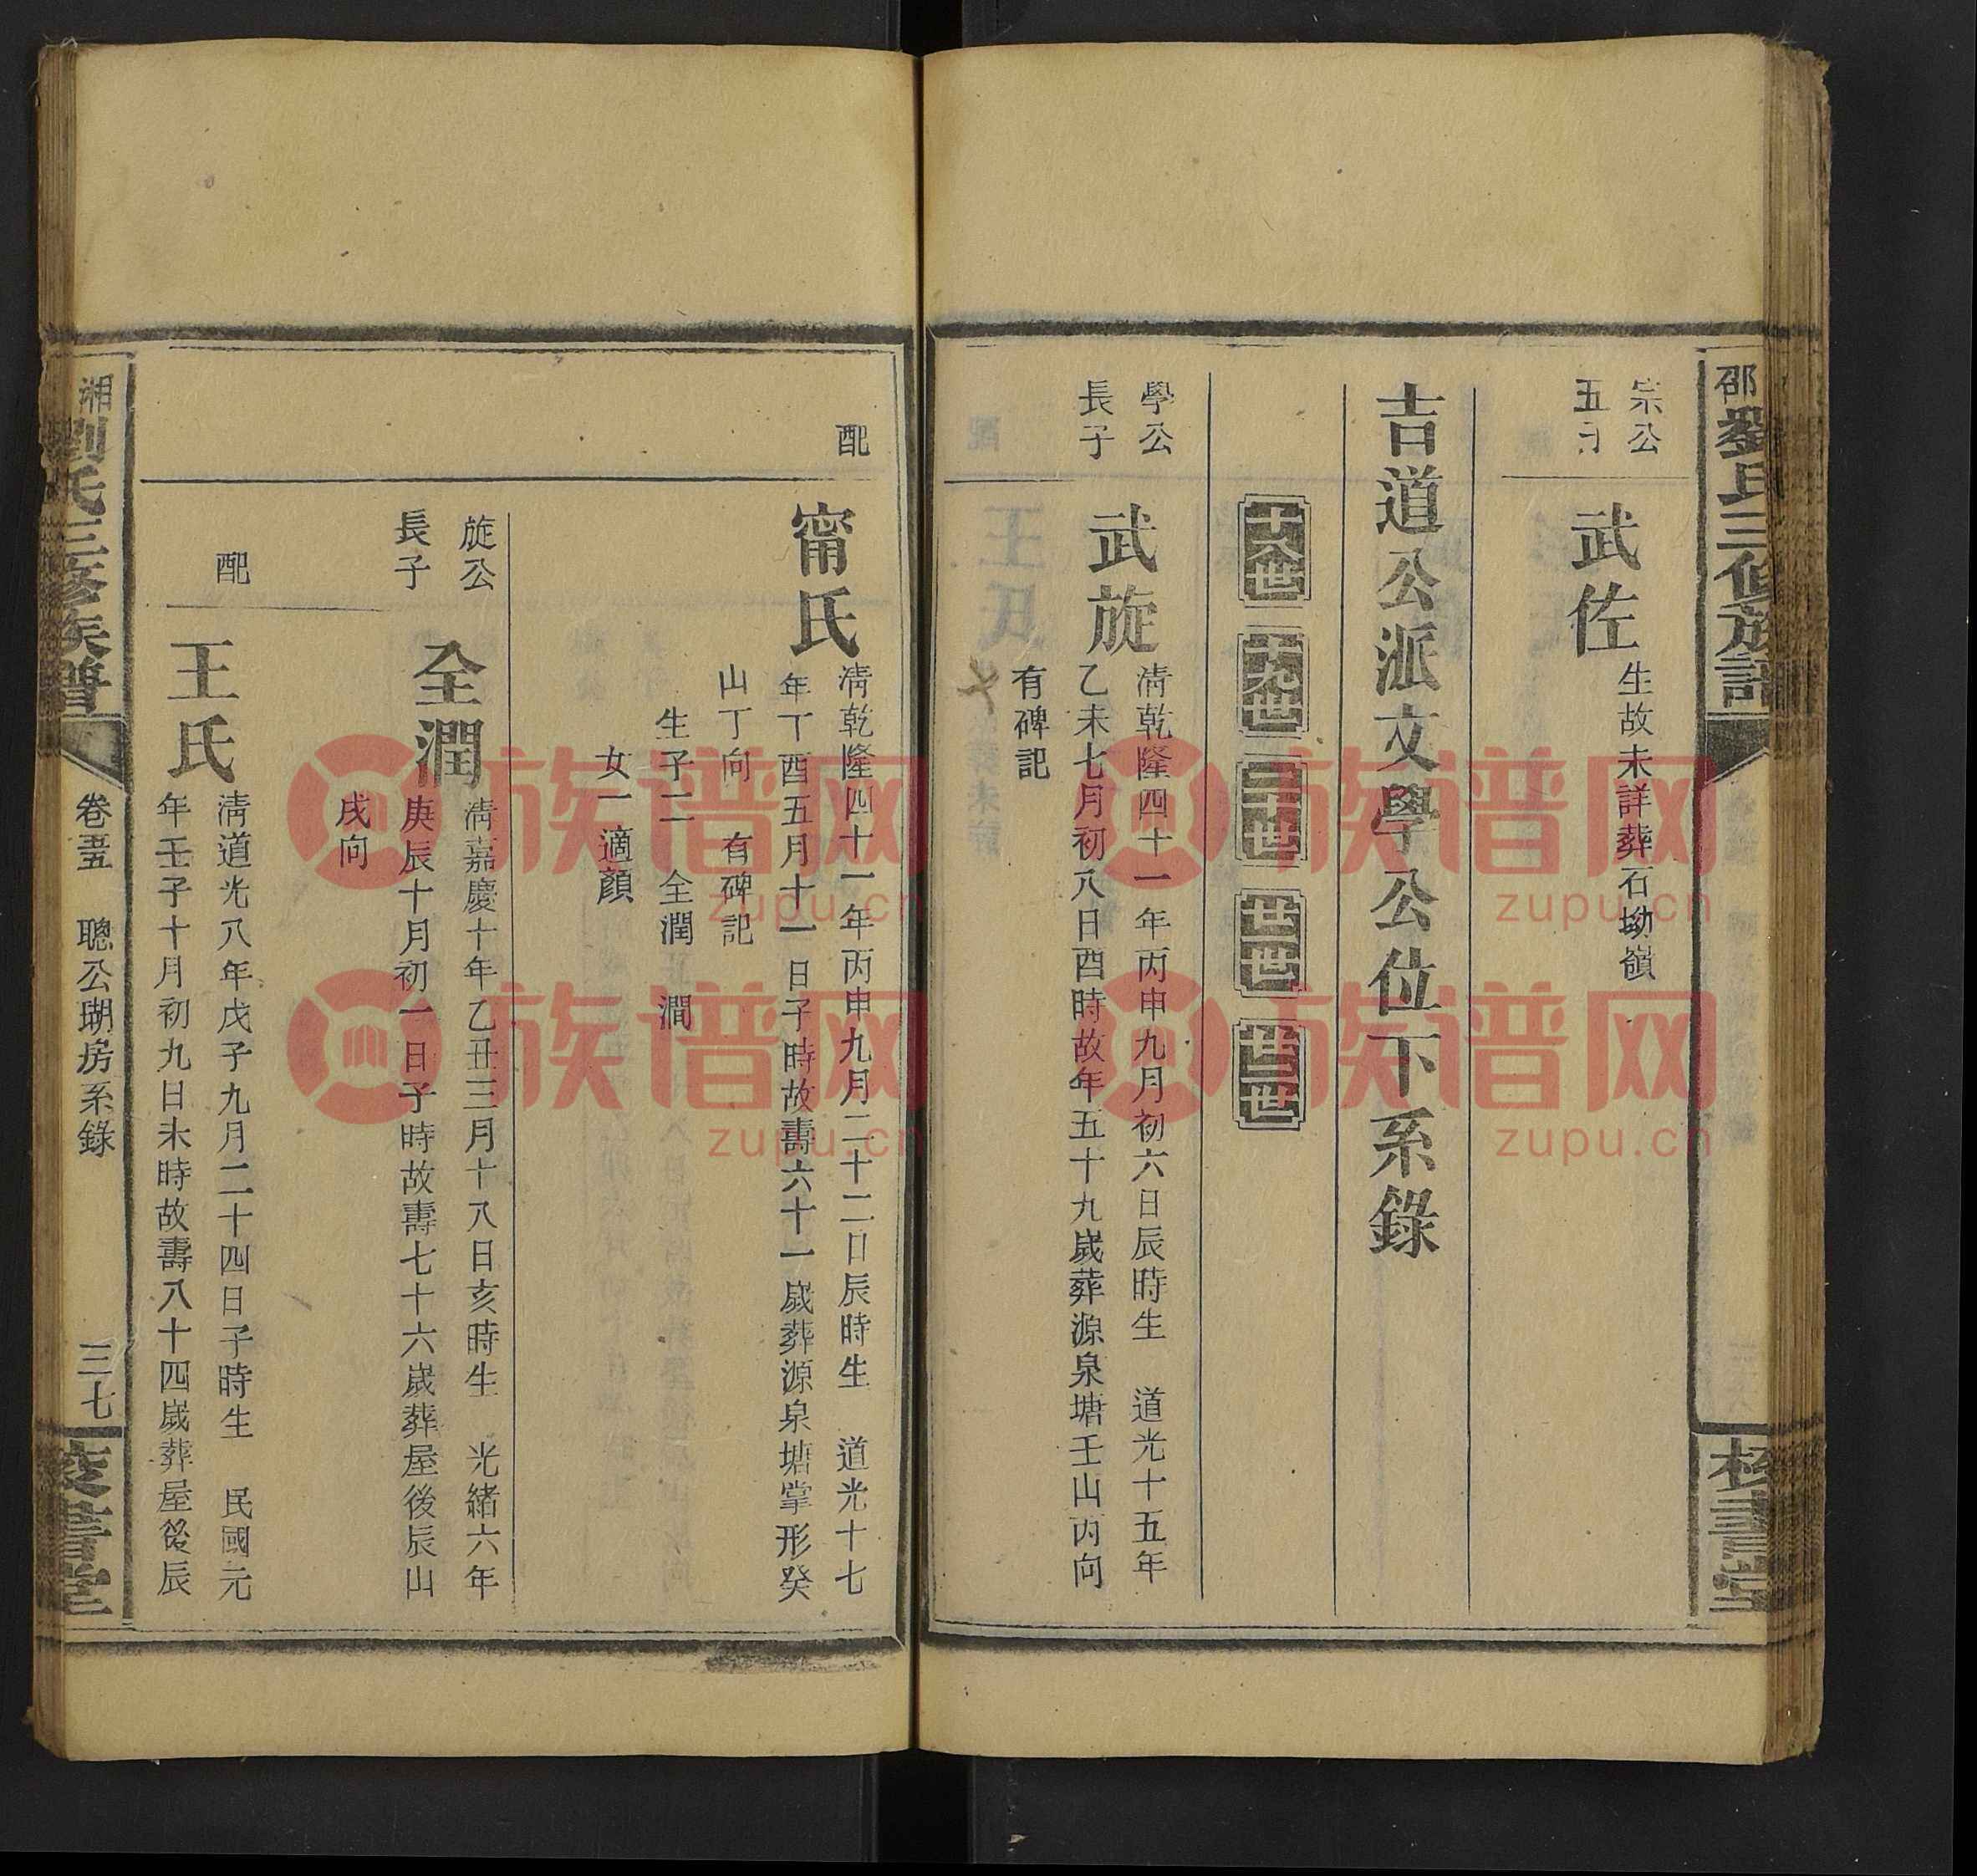 邵
劉氏三修族譜
校書堂
宗公
五子
武佐
生故未詳葬石坳嶺
吉道公派文學公位下系錄
十八世
十九世
二十世
廿一世
廿二世
學公
長子
武旋
清乾隆四十一年丙申九月初六日辰時生　道光十五年
乙未七月初八日酉時故年五十九歲葬源泉塘壬山丙向
有碑記
配
甯氏
清乾隆四十一年丙申九月二十二日辰時生　道光十七
年丁酉五月十一日子時故壽六十一歲葬源泉塘掌形癸
山丁向　有碑記
生子二　全潤　　澗
女一適顏
旋公
長子
全潤
清嘉慶十年乙丑三月十八日亥時生　光緒六年
庚辰十月初一日子時故壽七十六歲葬屋後辰山
戌向
配
王氏
清道光八年戊子九月二十四日子時生　民國元
年壬子十月初九日未時故壽八十四歲葬屋後辰
湘
劉氏三修族譜
卷五　聰公瑚房系錄
三七
校書堂
族谱网
zupu.cn
族谱网
zupu.cn
族谱网
zupu.cn
族谱网
zupu.cn